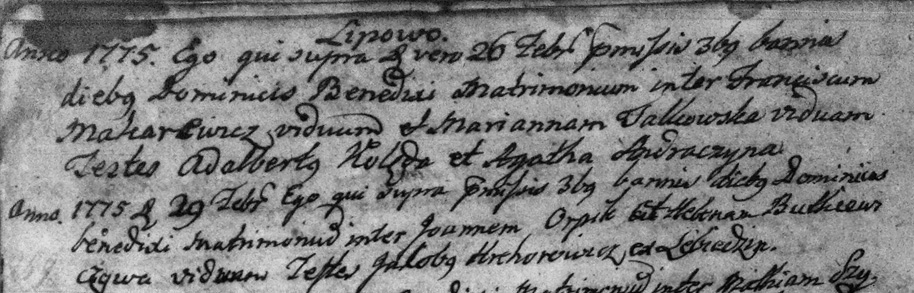 Lipowo.
Anno 1775. Ego qui supra d vero 26 Febr pmissis 3bg bannis
diebg Dominicis Benedixi Matrimonium inter Franciscum
Makarewicz viduum et Mariannam Talkowska viduam
Testes Adalbertg et Agatha Andraczyna
Anno. 1775 d 29 Febr Ego qui supra pmissis 3bg bannis diebg Dominicis
benedixi Matrimoniu inter Joannem Orpik et Helenam
viduam Testes Jakobg Hrehorewicz ex
Matrimoniu inter Mathiam Szy